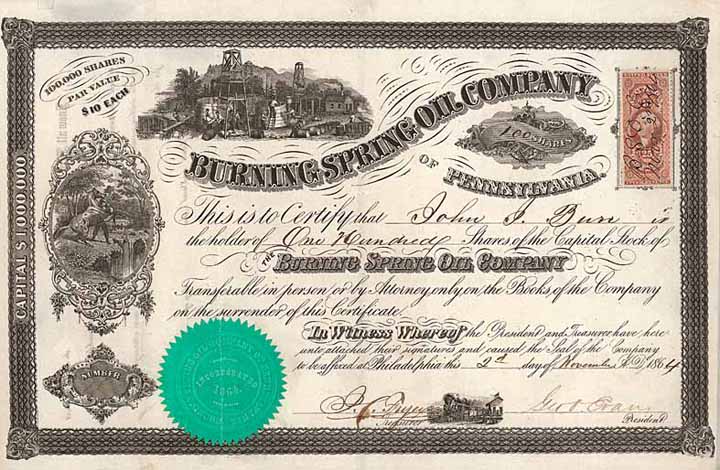 100,000 SHARES
PAR VALUE
$10 EACH
CAPITAL $1,000,000
BURNING SPRING OIL COMPANY
100 SHARES
OF PENNSYLVANIA.
This is to Certify that John
is
the holder of One Hundred Shares of the Capital Stock of
THE BURNING SPRING OIL COMPANY
Transferable in person or by Attorney only on the Books of the Company
on the surrender of this Certificate.
In Witness Whereof the President and Treasurer have here
unto attached their signatures and caused the Seal of the Company
to be affixed at Philadelphia this 2nd day of November A.D. 1864
NUMBER
INCORPORATED
1864
Treasurer
President